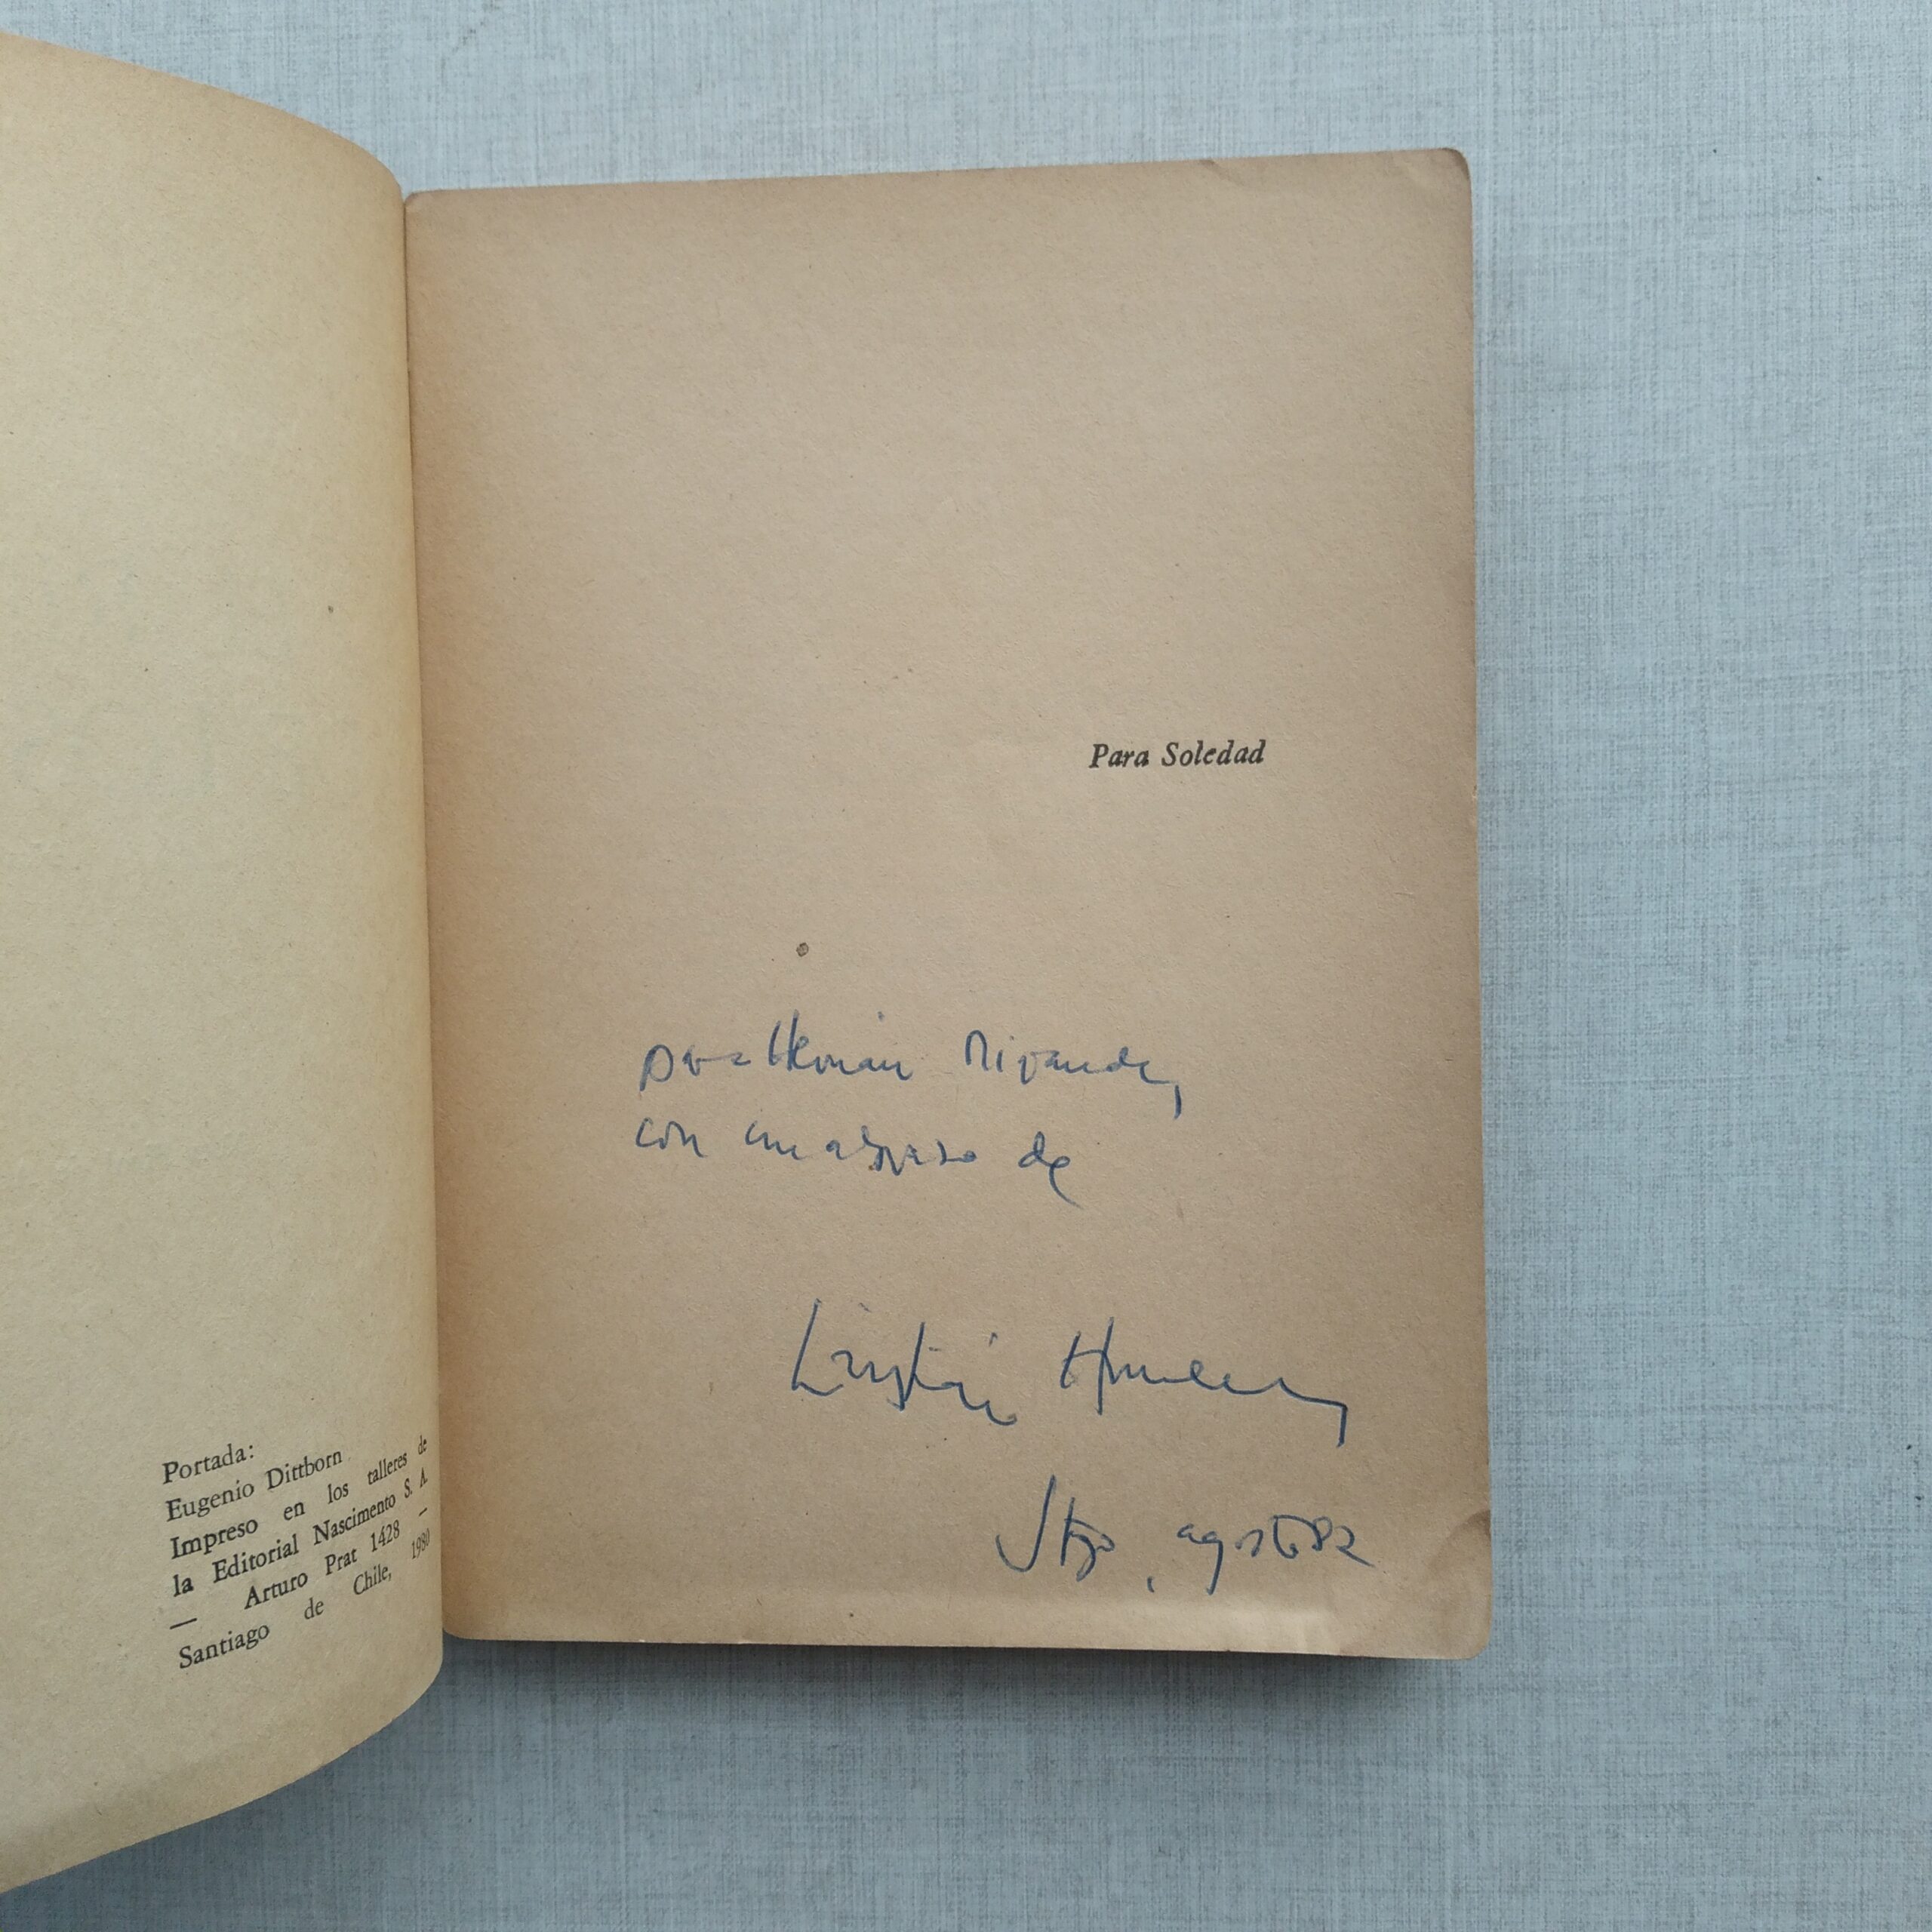 Portada:
Eugenio Dittborn
Impreso en los talleres de
la Editorial Nascimento S. A.
— Arturo Prat 1428 —
Santiago de Chile, 1980
Para Soledad
para Hernán
con un abrazo de
Cristián
Stgo, agosto 82